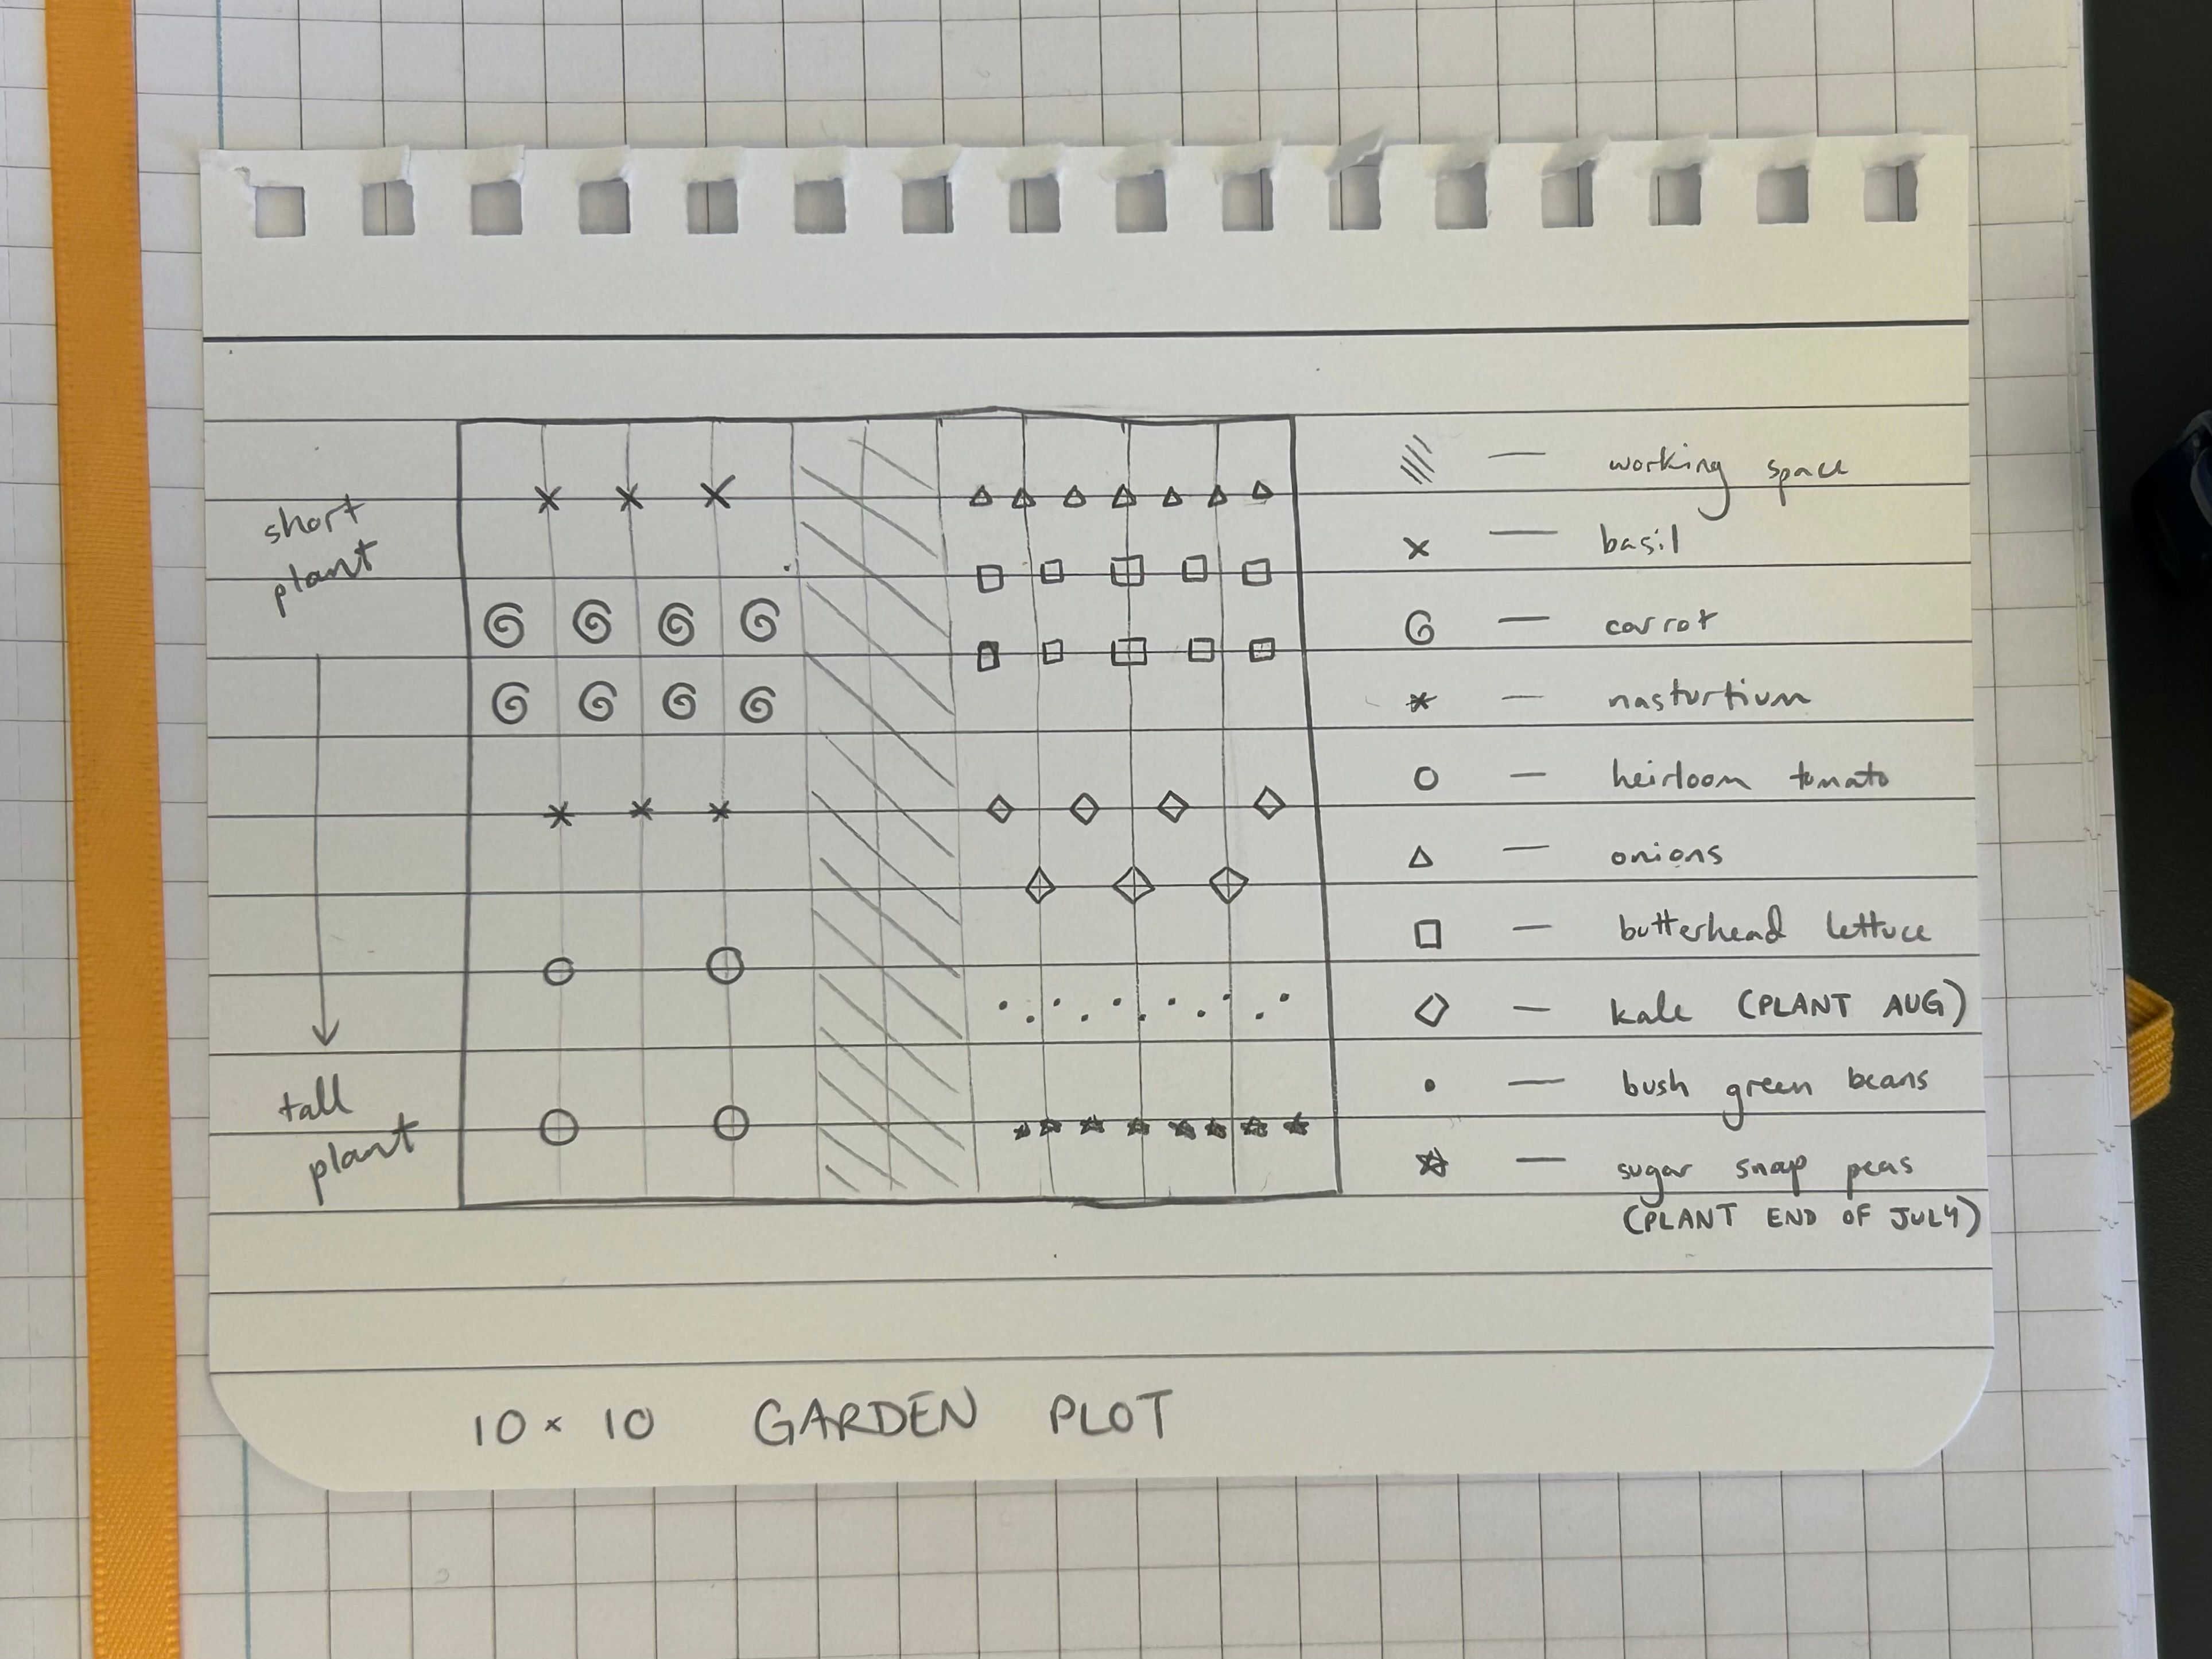 short
plant
tall
plant
working space
basil
carrot
nasturtium
heirloom tomato
onions
butterhead lettuce
kale (PLANT AUG)
bush green beans
sugar snap peas
(PLANT END OF JULY)
10 × 10 GARDEN PLOT